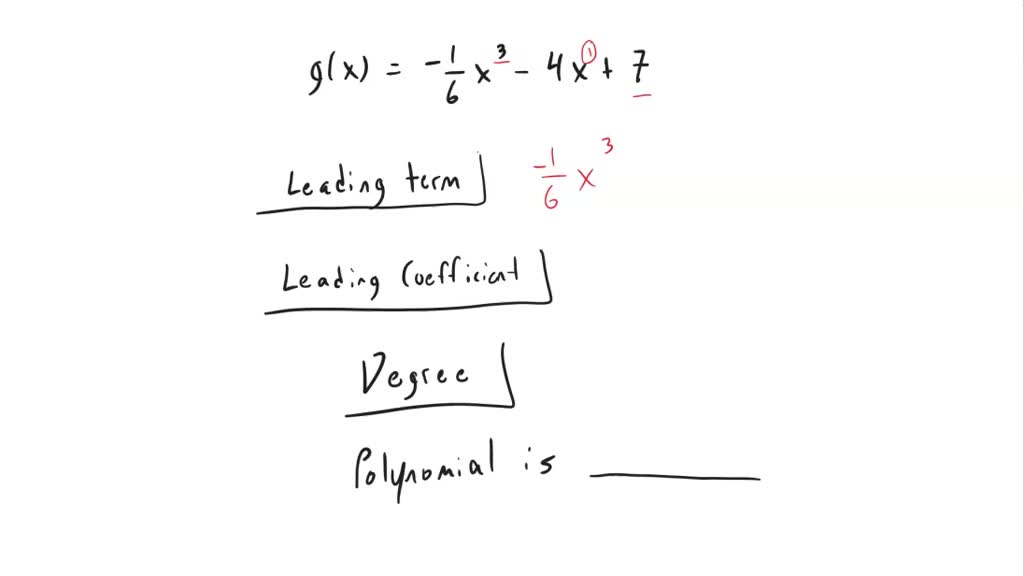 g(x) = -1/6 x^3 - 4x^1 + 7
Leading term -1/6 x^3
Leading Coefficient
Degree
Polynomial is ______